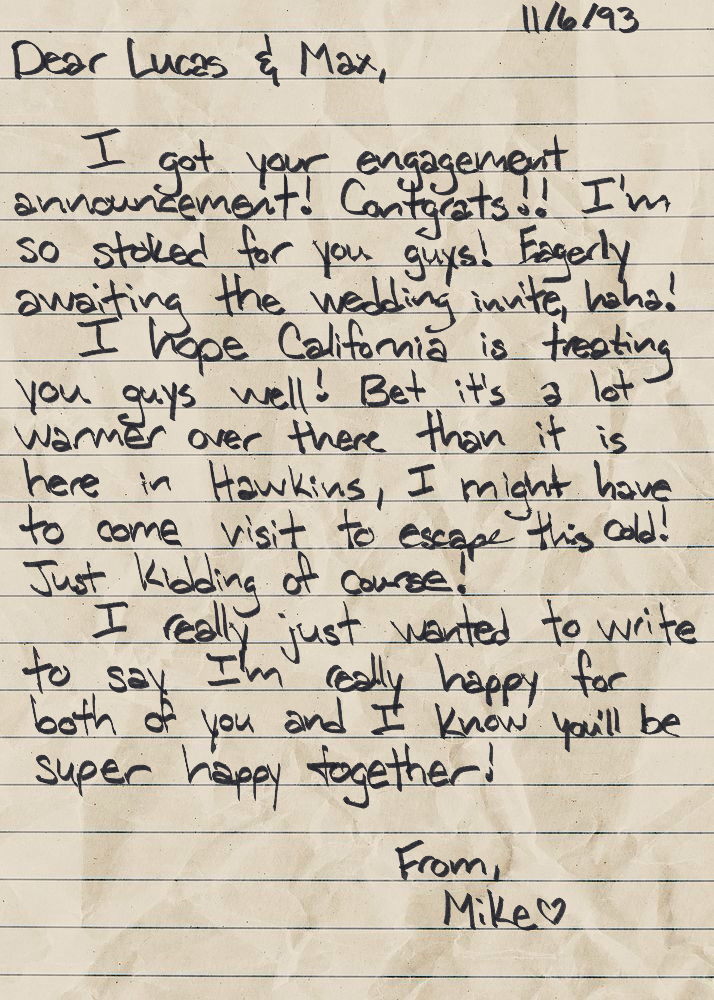 11/6/93
Dear Lucas & Max,
I got your engagement
announcement! Contgrats!! I'm
so stoked for you guys! Eagerly
awaiting the wedding invite, haha!
I hope California is treating
you guys well! Bet it's a lot
warmer over there than it is
here in Hawkins, I might have
to come visit to escape this cold!
Just kidding of course!
I really just wanted to write
to say I'm really happy for
both of you and I know you'll be
super happy together!
From,
Mike♡